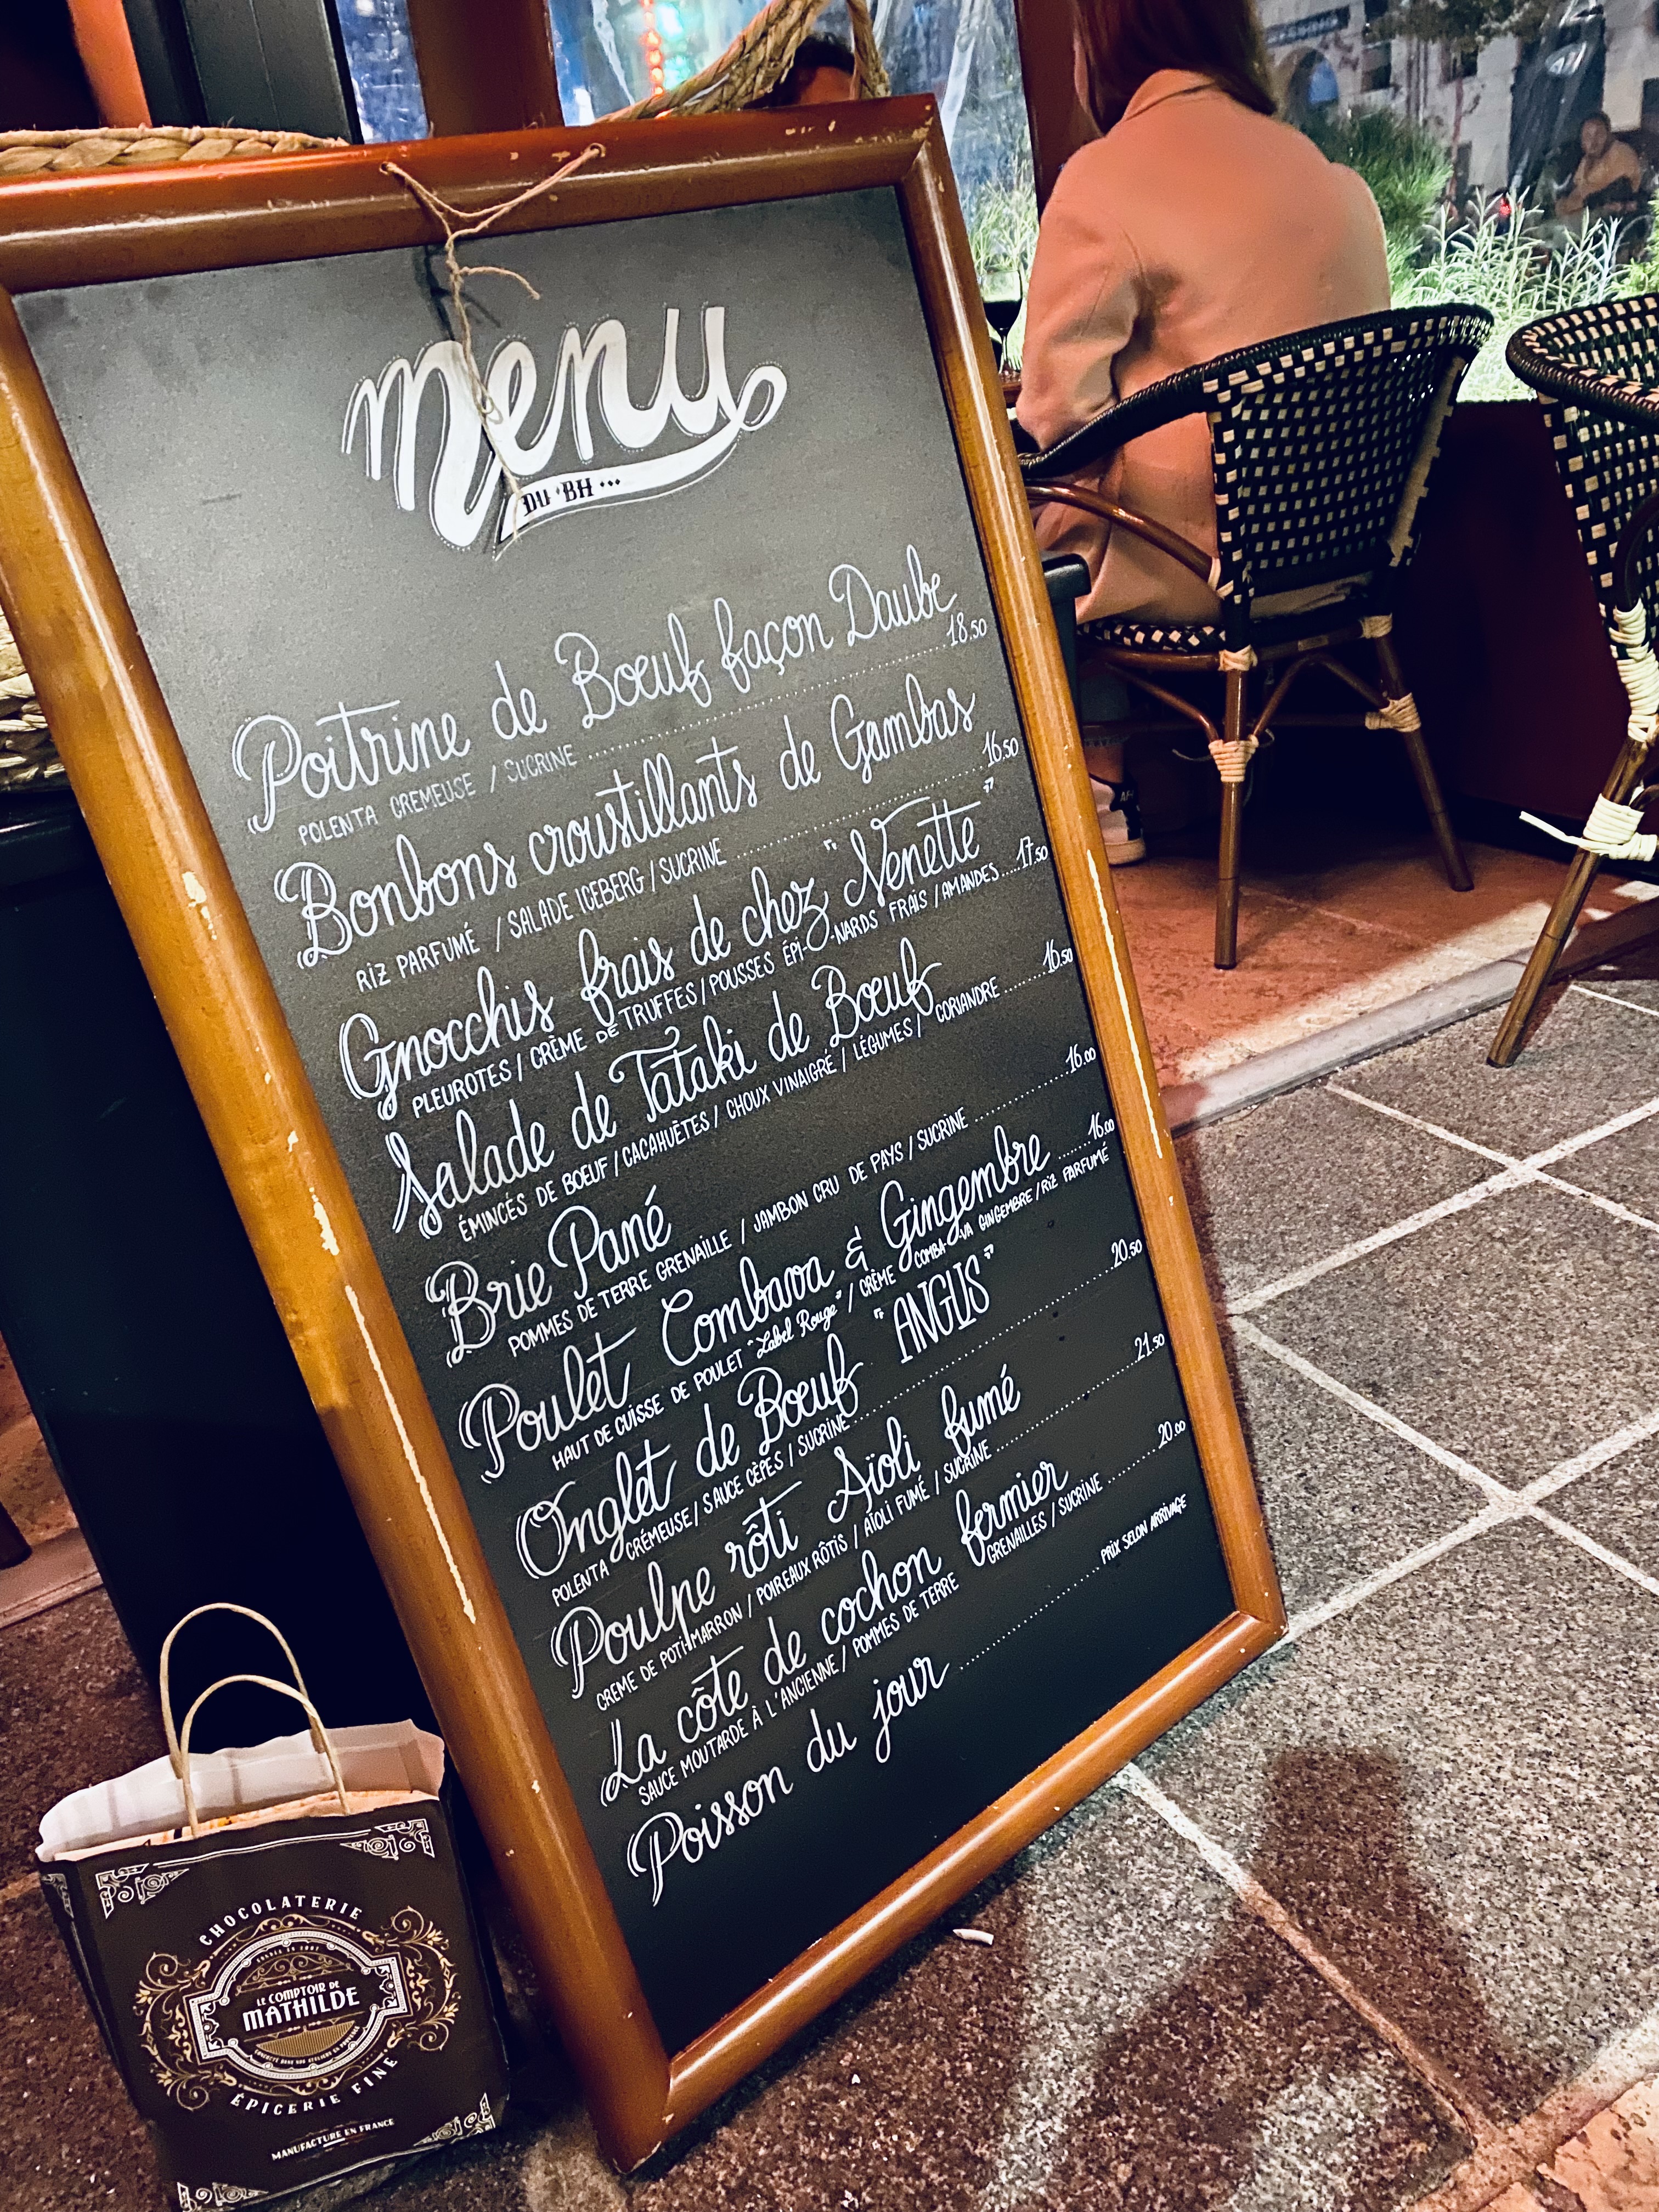 menu
DU BH ...
Poitrine de Bœuf façon Daube
POLENTA CREMEUSE / SUCRINE ........ 18.50
Bonbons croustillants de Gambas
RIZ PARFUMÉ / SALADE ICEBERG / SUCRINE ........ 16.50
Gnocchis frais de chez "Nenette"
PLEUROTES / CRÈME DE TRUFFES / POUSSES ÉPI--NARDS FRAIS / AMANDES .... 17.50
Salade de Tataki de Bœuf
ÉMINCÉS DE BOEUF / CACAHUÈTES / CHOUX VINAIGRÉ / LÉGUMES / CORIANDRE ........ 16.50
Brie Pané
POMMES DE TERRE GRENAILLE / JAMBON CRU DE PAYS / SUCRINE ........ 16.00
Poulet Combava & Gingembre ...... 16.00
HAUT DE CUISSE DE POULET "Label Rouge" / CRÈME COMBA--VA GINGEMBRE / RIZ PARFUMÉ
Onglet de Bœuf "ANGUS"
POLENTA CRÉMEUSE / SAUCE CÈPES / SUCRINE ........ 20.50
Poulpe rôti Aïoli fumé
CREME DE POTIMARRON / POIREAUX RÔTIS / AÏOLI FUMÉ / SUCRINE ........ 21.50
La côte de cochon fermier
SAUCE MOUTARDE À L'ANCIENNE / POMMES DE TERRE GRENAILLES / SUCRINE ........ 20.00
Poisson du jour ........ PRIX SELON ARRIVAGE
CHOCOLATERIE
LE COMPTOIR DE
MATHILDE
ÉPICERIE FINE
MANUFACTURE EN FRANCE